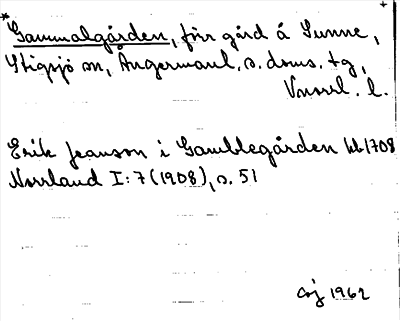 *Gammalgården, förr gård å Sunne,
Stigsjö sn, Ångermanl. s. doms. tg,
Vnorrl. l.
Erik Jeanson i Gamblegården hb 1708
Norrland I:7 (1908), s. 51
CJ 1962